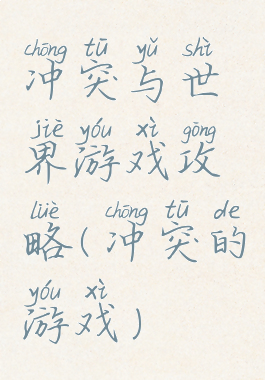 chōng tū yǔ shì
冲突与世
jiè yóu xì gōng
界游戏攻
lüè chōng tū de
略(冲突的
yóu xì
游戏)